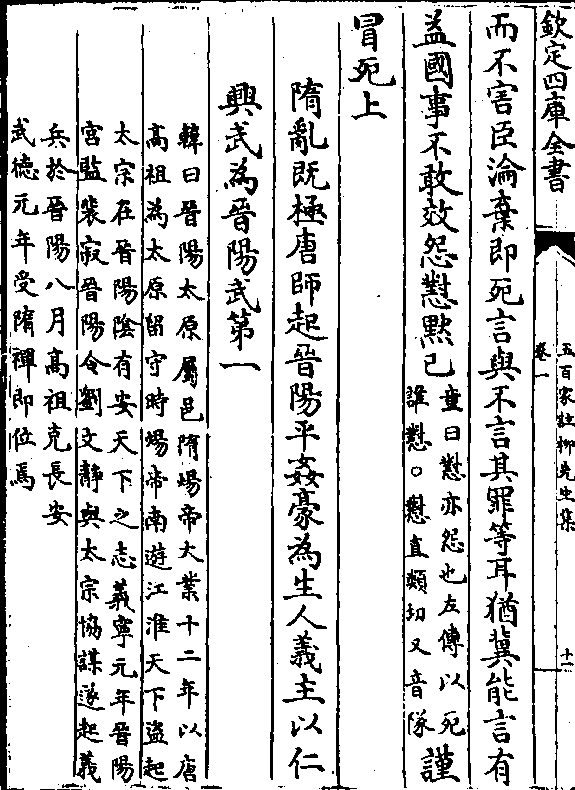 欽定四庫全書
五百家註柳先生集
卷一
十一
而不害臣淪棄即死言與不言其罪等耳猶冀能言有
益國事不敢效怨懟黙已童曰懟亦怨也左傳以死誰懟○懟直類切又音隊謹
冒死上
隋亂既極唐師起晉陽平姦豪為生人義主以仁
興武為晉陽武第一
韓曰晉陽太原屬邑隋煬帝大業十二年以唐
高祖為太原留守時煬帝南遊江淮天下盜起
太宗在晉陽陰有安天下之志義寧元年晉陽
宮監裴寂晉陽令劉文靜與太宗協謀遂起義
兵於晉陽八月高祖克長安
武德元年受隋禪即位焉